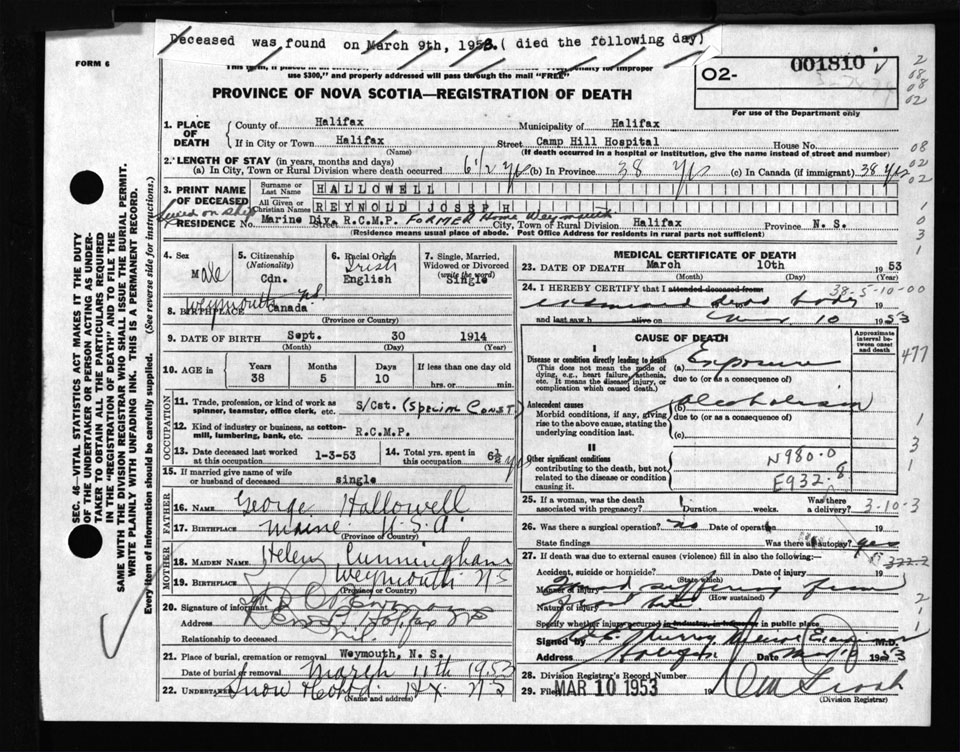 Deceased was found on March 9th, 1953.( died the following day)
FORM 6
use $300," and properly addressed will pass through the mail "FREE"
PROVINCE OF NOVA SCOTIA—REGISTRATION OF DEATH
O2- 001810
For use of the Department only
1. PLACE OF DEATH
County of Halifax Municipality of Halifax
If in City or Town Halifax Street Camp Hill Hospital House No.
(Name) (If death occurred in a hospital or institution, give the name instead of street and number)
2. LENGTH OF STAY (in years, months and days)
(a) In City, Town or Rural Division where death occurred 6½ yrs (b) In Province 38 yrs (c) In Canada (if immigrant) 38 yrs
3. PRINT NAME OF DECEASED
Surname or Last Name HALLOWELL
All Given or Christian Names REYNOLD JOSEPH
Lived on ship
RESIDENCE No. Marine Div. Street R.C.M.P. FORMER Home Weymouth City, Town or Rural Division Halifax Province N. S.
(Residence means usual place of abode. Post Office Address for residents in rural parts not sufficient)
4. Sex Male
5. Citizenship (Nationality) Cdn.
6. Racial Origin Irish English
7. Single, Married, Widowed or Divorced (write the word) Single
Weymouth NS
8. BIRTHPLACE Canada
(Province or Country)
9. DATE OF BIRTH Sept. 30 1914
(Month) (Day) (Year)
10. AGE in Years Months Days If less than one day old
38 5 10 hrs. or min.
OCCUPATION
11. Trade, profession, or kind of work as spinner, teamster, office clerk, etc. S/Cst. (SPECIAL CONST)
12. Kind of industry or business, as cotton-mill, lumbering, bank, etc. R.C.M.P.
13. Date deceased last worked at this occupation 1-3-53
14. Total yrs. spent in this occupation 6½ yrs
15. If married give name of wife or husband of deceased single
FATHER
16. Name George Hallowell
17. Birthplace Maine U.S.A.
(Province or Country)
MOTHER
18. MAIDEN NAME Helen Cunningham
19. Birthplace Weymouth NS
(Province or Country)
20. Signature of informant
Address Halifax NS
Relationship to deceased
21. Place of burial, cremation or removal Weymouth, N. S.
Date of burial or removal March 11th 1953
22. Undertaker Snow Co Ltd. Hx. NS
(Name and address)
MEDICAL CERTIFICATE OF DEATH
23. DATE OF DEATH March 10th 1953
(Month) (Day) (Year)
38-5-10-00
24. I HEREBY CERTIFY that I attended deceased from
examined dead body
and last saw h alive on Mar 10 1953
CAUSE OF DEATH
Approximate interval between onset and death
I
Disease or condition directly leading to death
(This does not mean the mode of dying, e.g., heart failure, asthenia, etc. It means the disease, injury, or complication which caused death.)
(a) Exposure
due to (or as a consequence of)
Antecedent causes
Morbid conditions, if any, giving rise to the above cause, stating the underlying condition last.
(b) alcoholism
due to (or as a consequence of)
(c)
II
Other significant conditions contributing to the death, but not related to the disease or condition causing it.
N980.0
E932.8
25. If a woman, was the death associated with pregnancy? Duration weeks. Was there a delivery? 3-10-3
26. Was there a surgical operation? no Date of operation 19
State findings Was there autopsy? yes
27. If death was due to external causes (violence) fill in also the following:—
Accident, suicide or homicide? Date of injury 19
(State which)
Manner of injury found suffering from
(How sustained)
Nature of injury
Specify whether injury occurred in industry, in home, or in public place
Signed by Murray Medical Examiner M.D.
Address Halifax Date Mar 10 1953
28. Division Registrar's Record Number
29. Filed MAR 10 1953 19
(Division Registrar)
SEC. 46—VITAL STATISTICS ACT MAKES IT THE DUTY OF THE UNDERTAKER OR PERSON ACTING AS UNDERTAKER TO OBTAIN ALL THE PARTICULARS REQUIRED IN THE "REGISTRATION OF DEATH" AND TO FILE THE SAME WITH THE DIVISION REGISTRAR WHO SHALL ISSUE THE BURIAL PERMIT.
WRITE PLAINLY WITH UNFADING INK. THIS IS A PERMANENT RECORD.
Every item of information should be carefully supplied. (See reverse side for instructions.)
2
08
08
02
08
02
02
1
0
3
477
1
3
2
1
1